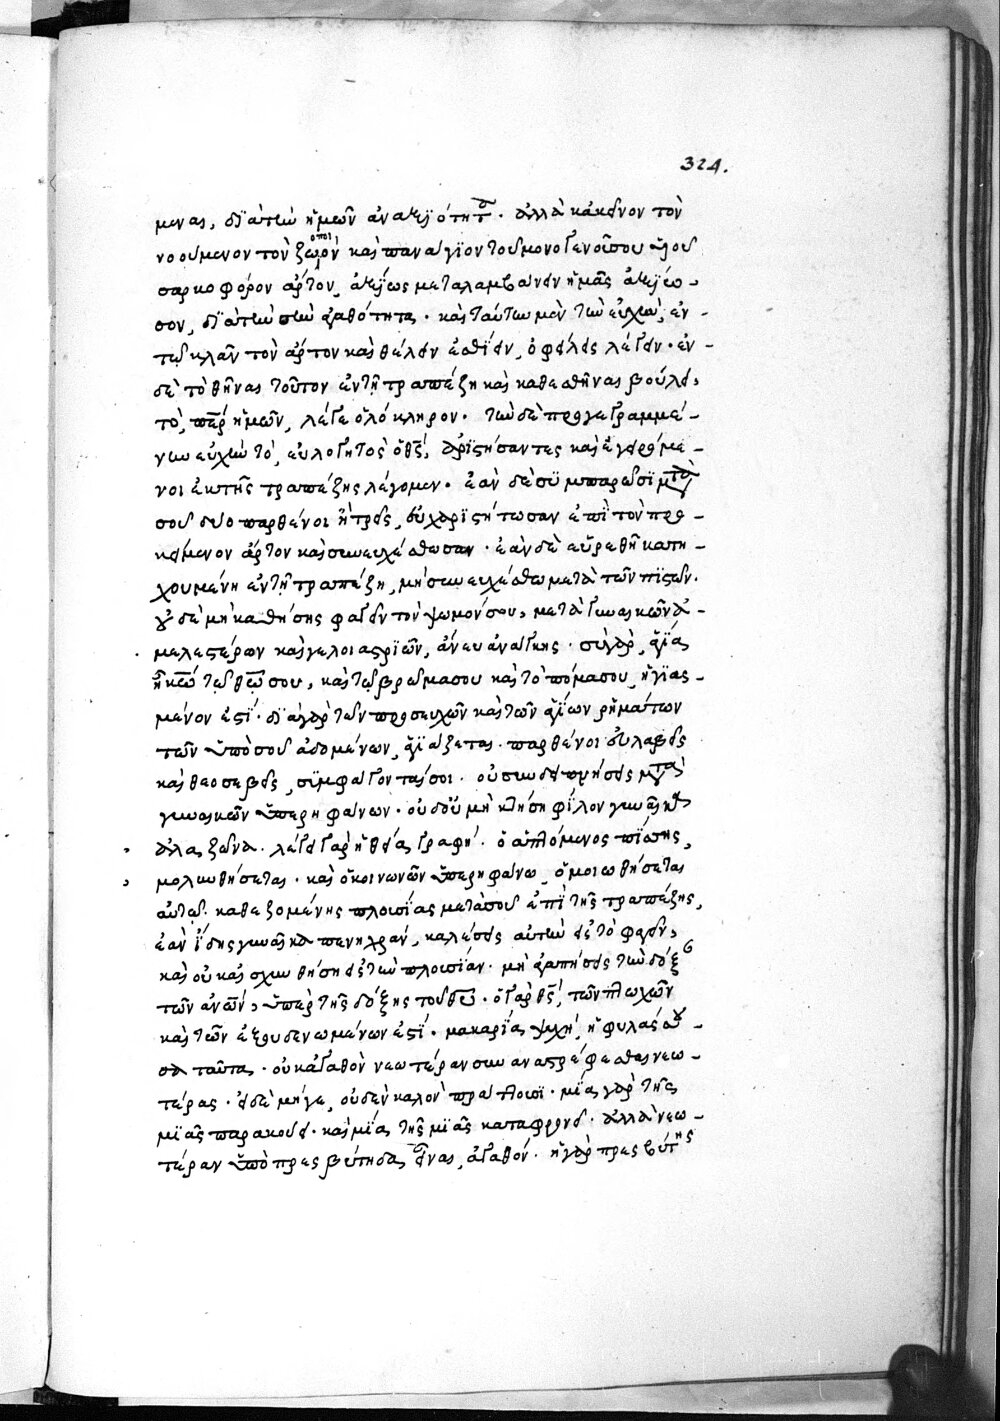 324.
μεναι, διὰ τὴν ἡμῶν ἀναξιότητα. ἀλλὰ κἀκεῖνον τὸν
νοούμενον τὸν ζωοποιὸν καὶ παναγιον τοῦ μονογενοῦς σου υἱοῦ
σαρκοφόρον ἄρτον, ἀξίως μεταλαμβάνειν ἡμᾶς ἀξίω-
σον, διὰ τὴν σὴν ἀγαθότητα. καὶ ταύτην μὲν τὴν εὐχὴν, ἐν
τῷ κλᾶν τὸν ἄρτον καὶ θέλειν ἐσθίειν, ὀφείλεις λέγειν. ἐν
δὲ τὸ θῆναι τοῦτον ἐν τῇ τραπέζῃ καὶ καθεσθῆναι βούλει,
τὸ, πάτερ ἡμῶν, λέγε ὁλόκληρον. τὴν δὲ προγεγραμμέ-
νην εὐχὴν τὸ, εὐλογητὸς ὁ θς, ἀριστήσαντες καὶ ἐγειρόμε-
νοι ἐκ τῆς τραπέζης λέγομεν. ἐὰν δὲ συμπαρῶσι μετὰ
σοῦ δύο παρθένοι ἢ τρεῖς, εὐχαριστήτωσαν ἐπὶ τὸν προ-
κείμενον ἄρτον καὶ συνευχέσθωσαν. ἐὰν δὲ εὑρεθῇ κατη-
χουμένη ἐν τῇ τραπέζῃ, μὴ συνευχέσθω μετὰ τῶν πιστῶν.
οὐδὲ μὴ καθήσῃς φαγεῖν τὸν ψωμόν σου, μετὰ γυναικῶν ἀ-
μελεστέρων καὶ γελοιαστριῶν, ἄνευ ἀνάγκης. σὺ γὰρ, ἁγία
ἢ κῶ τῷ θῶ σου, καὶ τὸ βρῶμά σου καὶ τὸ πόμα σου, ἡγιασ-
μένον ἐστί. διὰ γὰρ τῶν προσευχῶν καὶ τῶν ἁγίων ῥημάτων
τῶν ὑπὸ σοῦ ἀδομένων, ἁγιάζεται. παρθένοι εὐλαβεῖς
καὶ θεοσεβεῖς, συμφαγονταί σοι. οὐ συνδειπνήσεις μετὰ
γυναικῶν ὑπερηφάνων. οὐδ' οὐ μὴ κλήσῃ φίλον γυναῖκα
ἀλαζόνα. λέγει γὰρ ἡ θεία γραφή. ὁ ἁπτόμενος πίσσης,
μολυνθήσεται. καὶ ὁ κοινωνῶν ὑπερηφάνω, ὁμοιωθήσεται
αὐτῷ. καθεζομένης πλουσίας μετὰ σοῦ ἐπὶ τῆς τραπέζης,
ἐὰν ἴδῃς γυναῖκα πενιχράν, καλέσεις αὐτὴν εἰς τὸ φαγεῖν,
καὶ οὐκ αἰσχυνθήσῃ εἰς τὴν πλουσίαν. μὴ ἀγαπήσεις τὴν δόξαν
τῶν ἀνων, ὑπὲρ τῆς δόξης τοῦ θυ. ὁ γὰρ θς, τῶν πτωχῶν
καὶ τῶν ἐξουδενωμένων ἐστί. μακαρία ψυχὴ, ἡ φυλάσσου-
σα ταῦτα. οὐκ ἀγαθὸν νεωτέραν συναναστρέφεσθαι νεω-
τέραις. εἰ δὲ μήγε, οὐδὲν καλὸν πράττουσι. μία γὰρ τῆς
μιᾶς παρακούει. καὶ μία τῆς μιᾶς καταφρονεῖ. ἀλλὰ νεω-
τέραν ὑπὸ πρεσβύτησαν εἶναι, ἀγαθόν. ἡ γὰρ πρεσβύτης